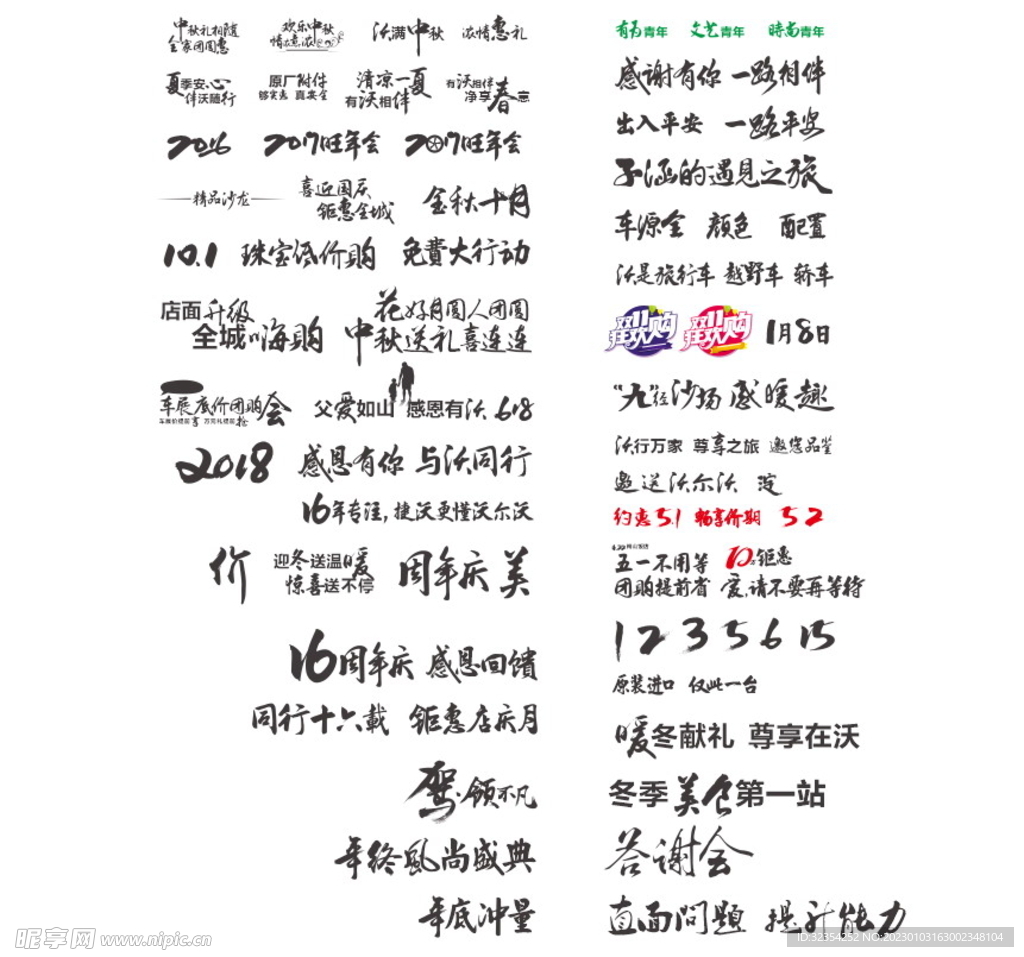 中秋礼相随
全家团圆惠
欢乐中秋
情意浓
沃满中秋
浓情惠礼
夏季安心
伴沃随行
原厂附件
够实惠 真安全
清凉一夏
有沃相伴
有沃相伴
净享春意
2016
2017旺年会
2017旺年会
精品沙龙
喜迎国庆
钜惠全城
金秋十月
10.1
珠宝低价购
免費大行动
店面升级
全城嗨购
花好月圆人团圆
中秋送礼喜连连
车展底价团购会
父爱如山
感恩有沃
618
2018
感恩有你
与沃同行
16年专注,捷沃更懂沃尔沃
价
迎冬送温暖
惊喜送不停
周年庆
美
16周年庆
感恩回馈
同行十六载
钜惠店庆月
驾·领不凡
年终風尚盛典
年底冲量
有为青年
文艺青年
時尚青年
感谢有你
一路相伴
出入平安
一路平安
子涵的遇見之旅
车源全
颜色
配置
沃是旅行车
越野车
轿车
双11狂欢购
双11狂欢购
1月8日
“九”径沙场
感暖趣
沃行万家
尊享之旅
邀您品鉴
邀送沃尔沃
淀
约惠5.1
畅享价期
52
五一不用等
团购提前省
钜惠
爱,请不要再等待
1 2 3 5 6 15
原装进口
仅此一台
暖冬献礼
尊享在沃
冬季美食第一站
答谢会
直面问題
提升能力
昵享网 www.nipic.cn
ID:32354252 NO:20230103163002348104